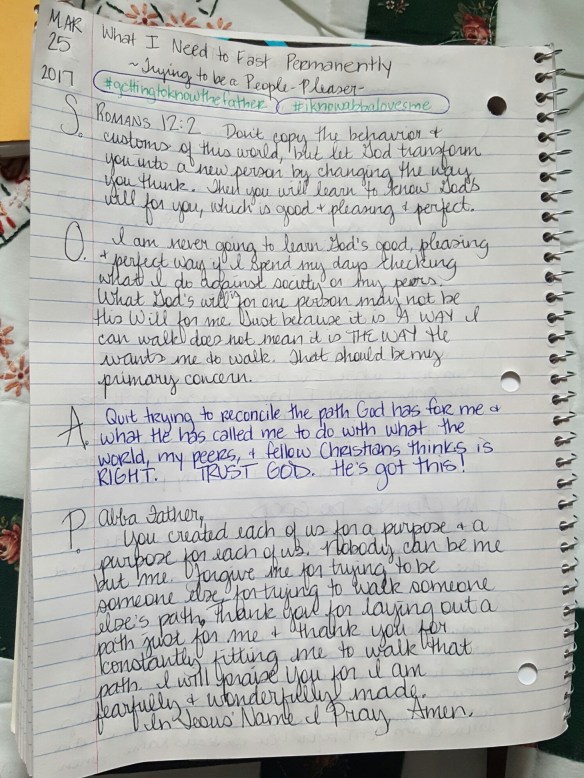 MAR
25
2017
What I Need to Fast Permanently
~ Trying to be a People-Pleaser ~
#gettingtoknowthefather #iknowabbalovesme
S. ROMANS 12:2 Don't copy the behavior +
customs of this world, but let God transform
you into a new person by changing the way
you think. Then you will learn to know God's
will for you, which is good + pleasing + perfect.
O. I am never going to learn God's good, pleasing
+ perfect way if I spend my days checking
what I do against society or my peers.
What God's will is for one person may not be
His Will for me. Just because it is A WAY I
can walk does not mean it is THE WAY He
wants me to walk. That should be my
primary concern.
A. Quit trying to reconcile the path God has for me +
what He has called me to do with what the
world, my peers, + fellow Christians thinks is
RIGHT. TRUST GOD. He's got this!
P. Abba Father,
You created each of us for a purpose + a
purpose for each of us. Nobody can be me
but me. Forgive me for trying to be
someone else, for trying to walk someone
else's path. Thank you for laying out a
path just for me + thank you for
constantly fitting me to walk that
path. I will praise you for I am
fearfully + wonderfully made.
In Jesus' Name I Pray Amen.